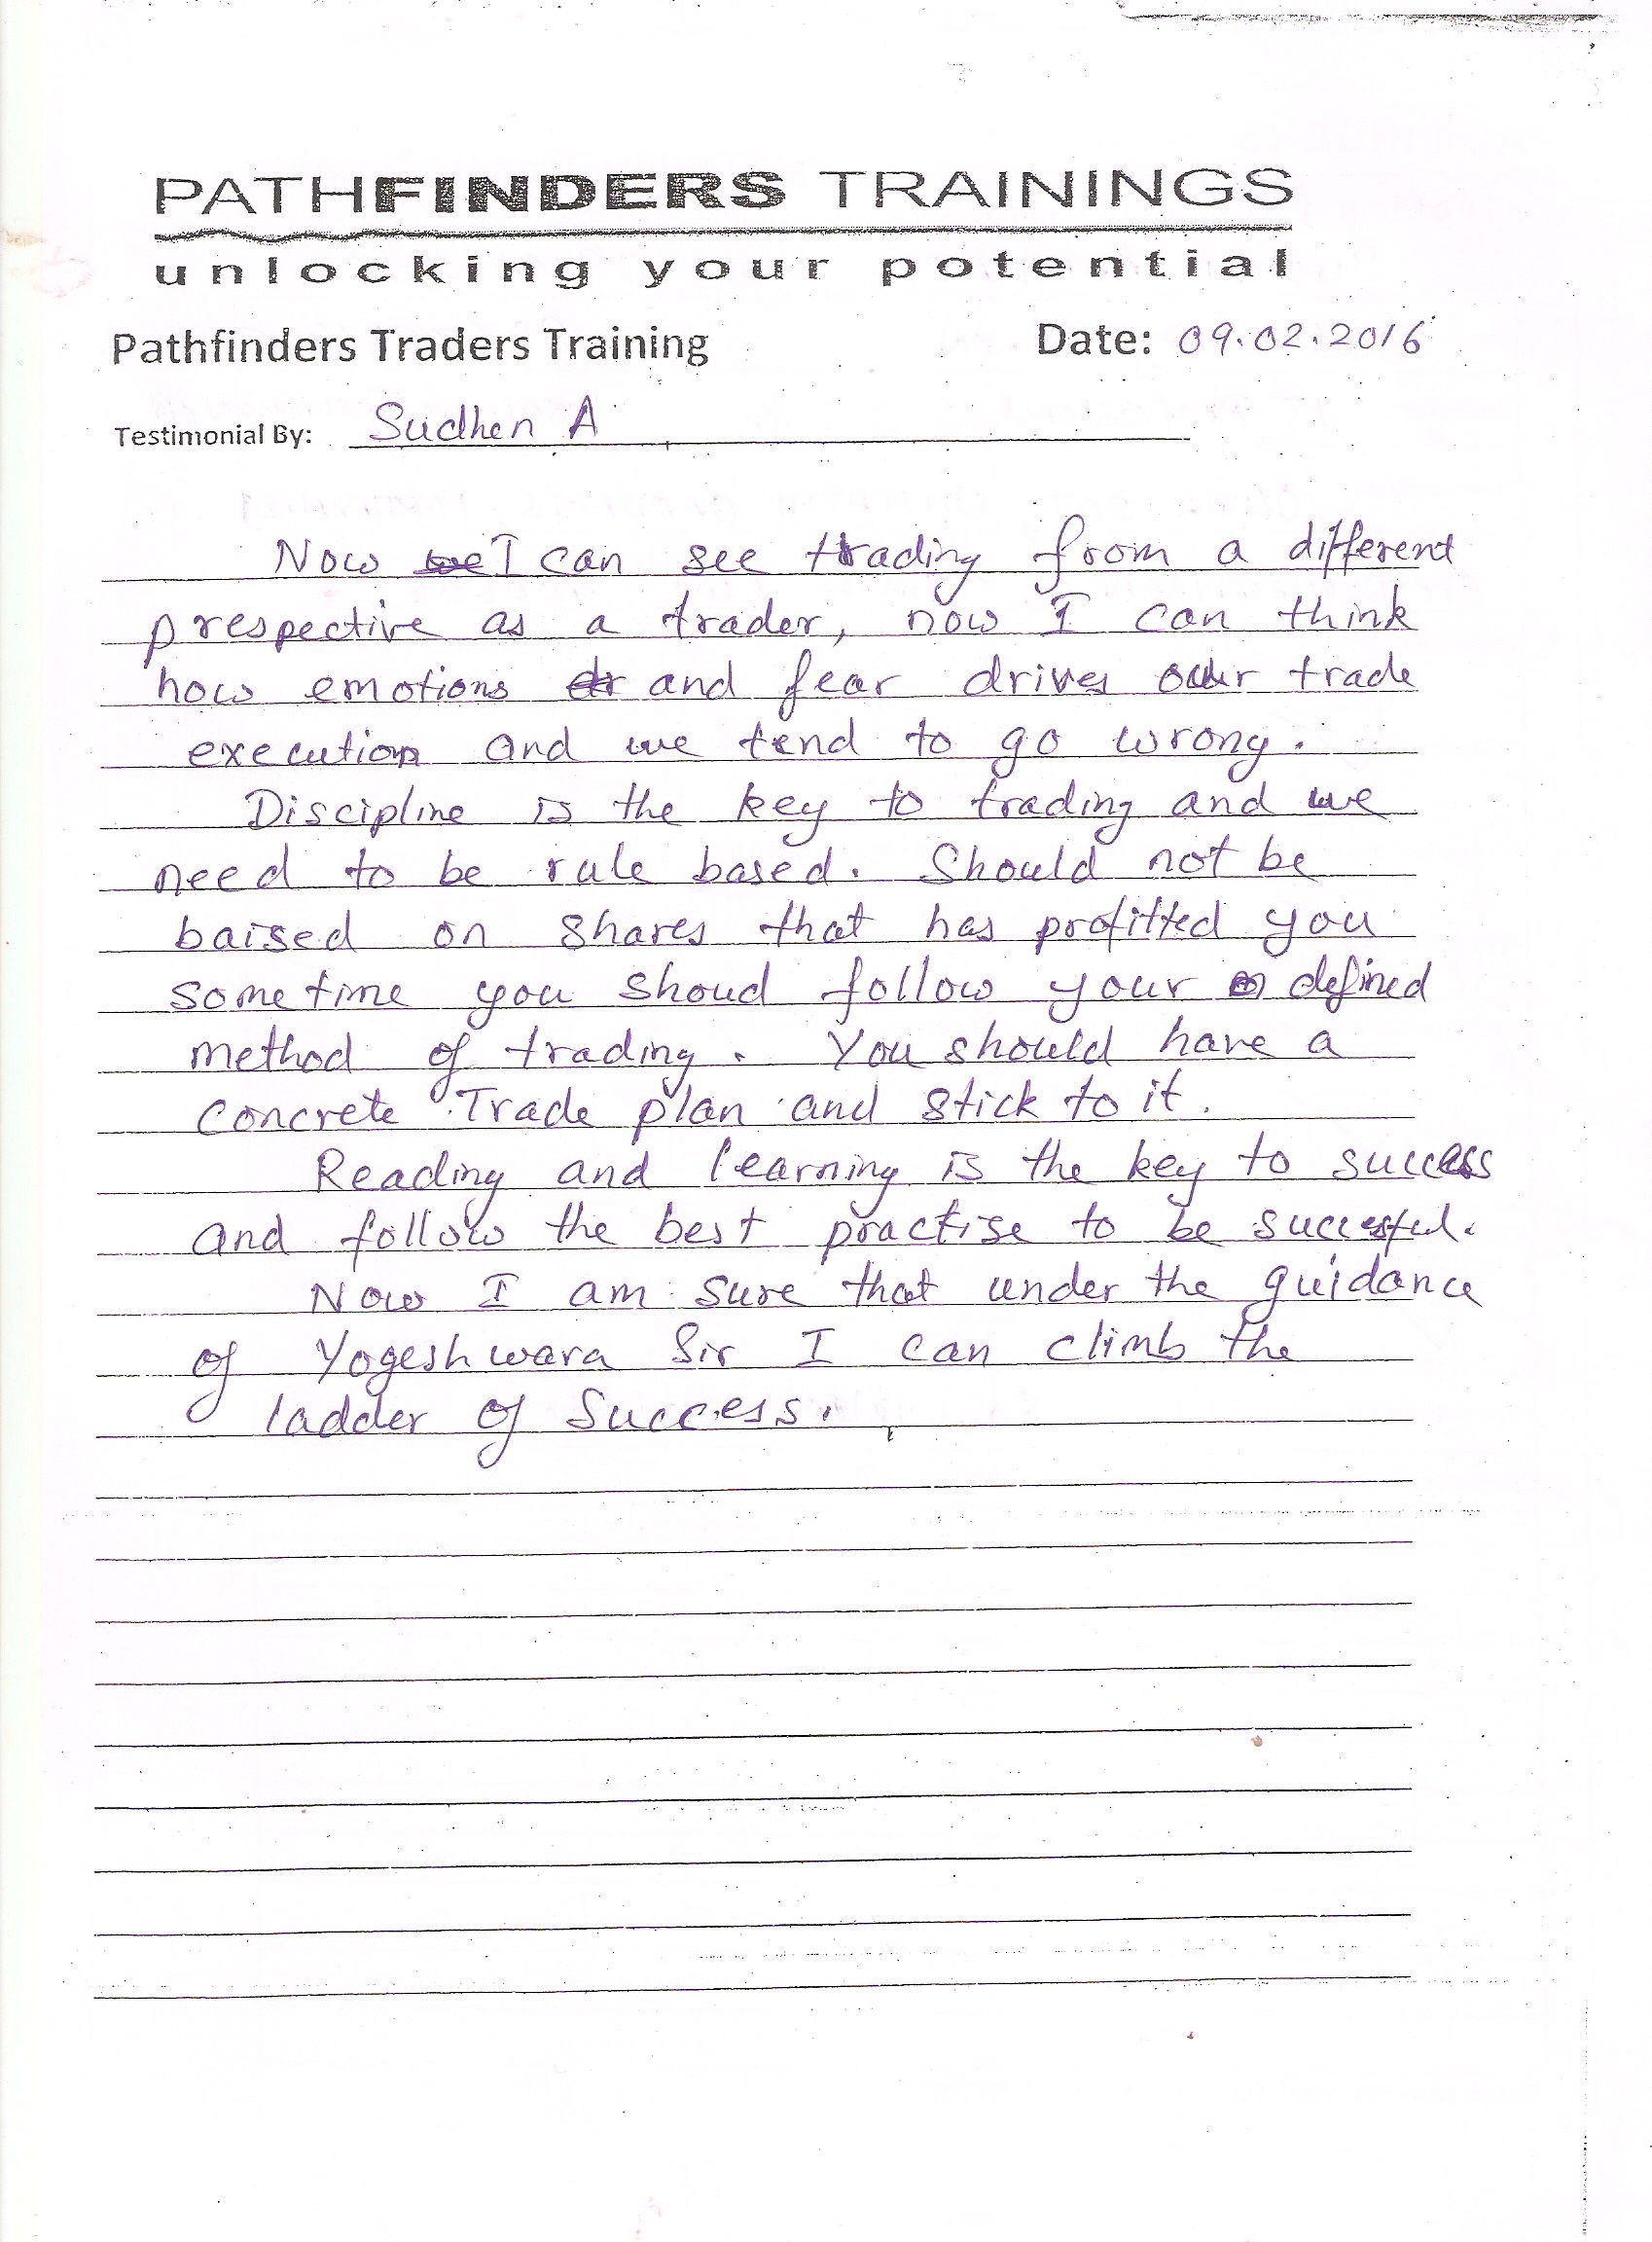 PATHFINDERS TRAININGS
unlocking your potential
Pathfinders Traders Training Date: 09.02.2016
Testimonial By: Sudhen A
Now we I can see trading from a different
prespective as a trader, now I can think
how emotions dr and fear drives our trade
execution and we tend to go wrong.
Discipline is the key to trading and we
need to be rule based. Should not be
baised on shares that has profitted you
sometime you shoud follow your defined
method of trading. You should have a
concrete Trade plan and stick to it.
Reading and learning is the key to success
and follow the best practise to be succesful.
Now I am sure that under the guidance
of Yogeshwara Sir I can climb the
ladder of Success.